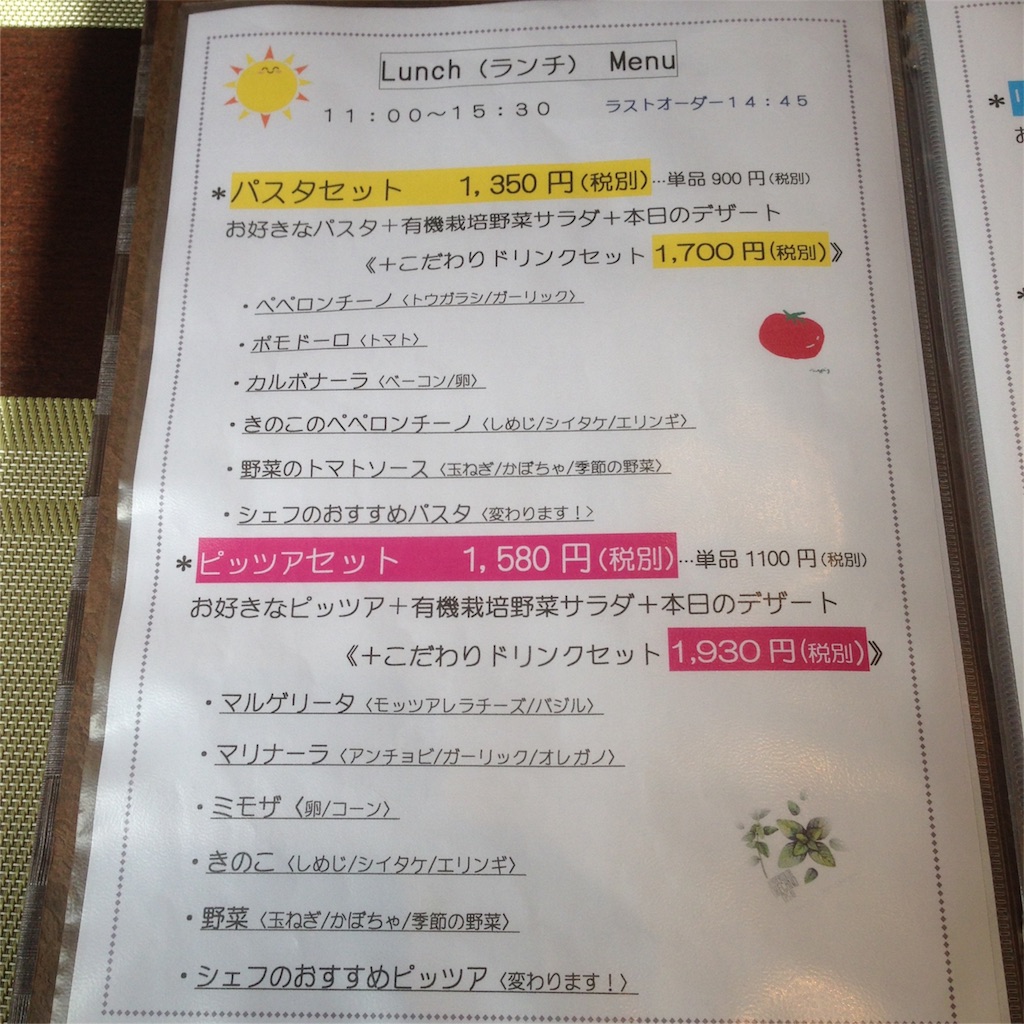 Lunch（ランチ） Menu
１１：００～１５：３０ ラストオーダー１４：４５
＊パスタセット 1,350円(税別)…単品 900円(税別)
お好きなパスタ＋有機栽培野菜サラダ＋本日のデザート
《＋こだわりドリンクセット 1,700円(税別)》
・ペペロンチーノ〈トウガラシ/ガーリック〉
・ポモドーロ〈トマト〉
・カルボナーラ〈ベーコン/卵〉
・きのこのペペロンチーノ〈しめじ/シイタケ/エリンギ〉
・野菜のトマトソース〈玉ねぎ/かぼちゃ/季節の野菜〉
・シェフのおすすめパスタ〈変わります！〉
＊ピッツアセット 1,580円(税別)…単品 1100円(税別)
お好きなピッツア＋有機栽培野菜サラダ＋本日のデザート
《＋こだわりドリンクセット 1,930円(税別)》
・マルゲリータ〈モッツアレラチーズ/バジル〉
・マリナーラ〈アンチョビ/ガーリック/オレガノ〉
・ミモザ〈卵/コーン〉
・きのこ〈しめじ/シイタケ/エリンギ〉
・野菜〈玉ねぎ/かぼちゃ/季節の野菜〉
・シェフのおすすめピッツア〈変わります！〉
＊
お